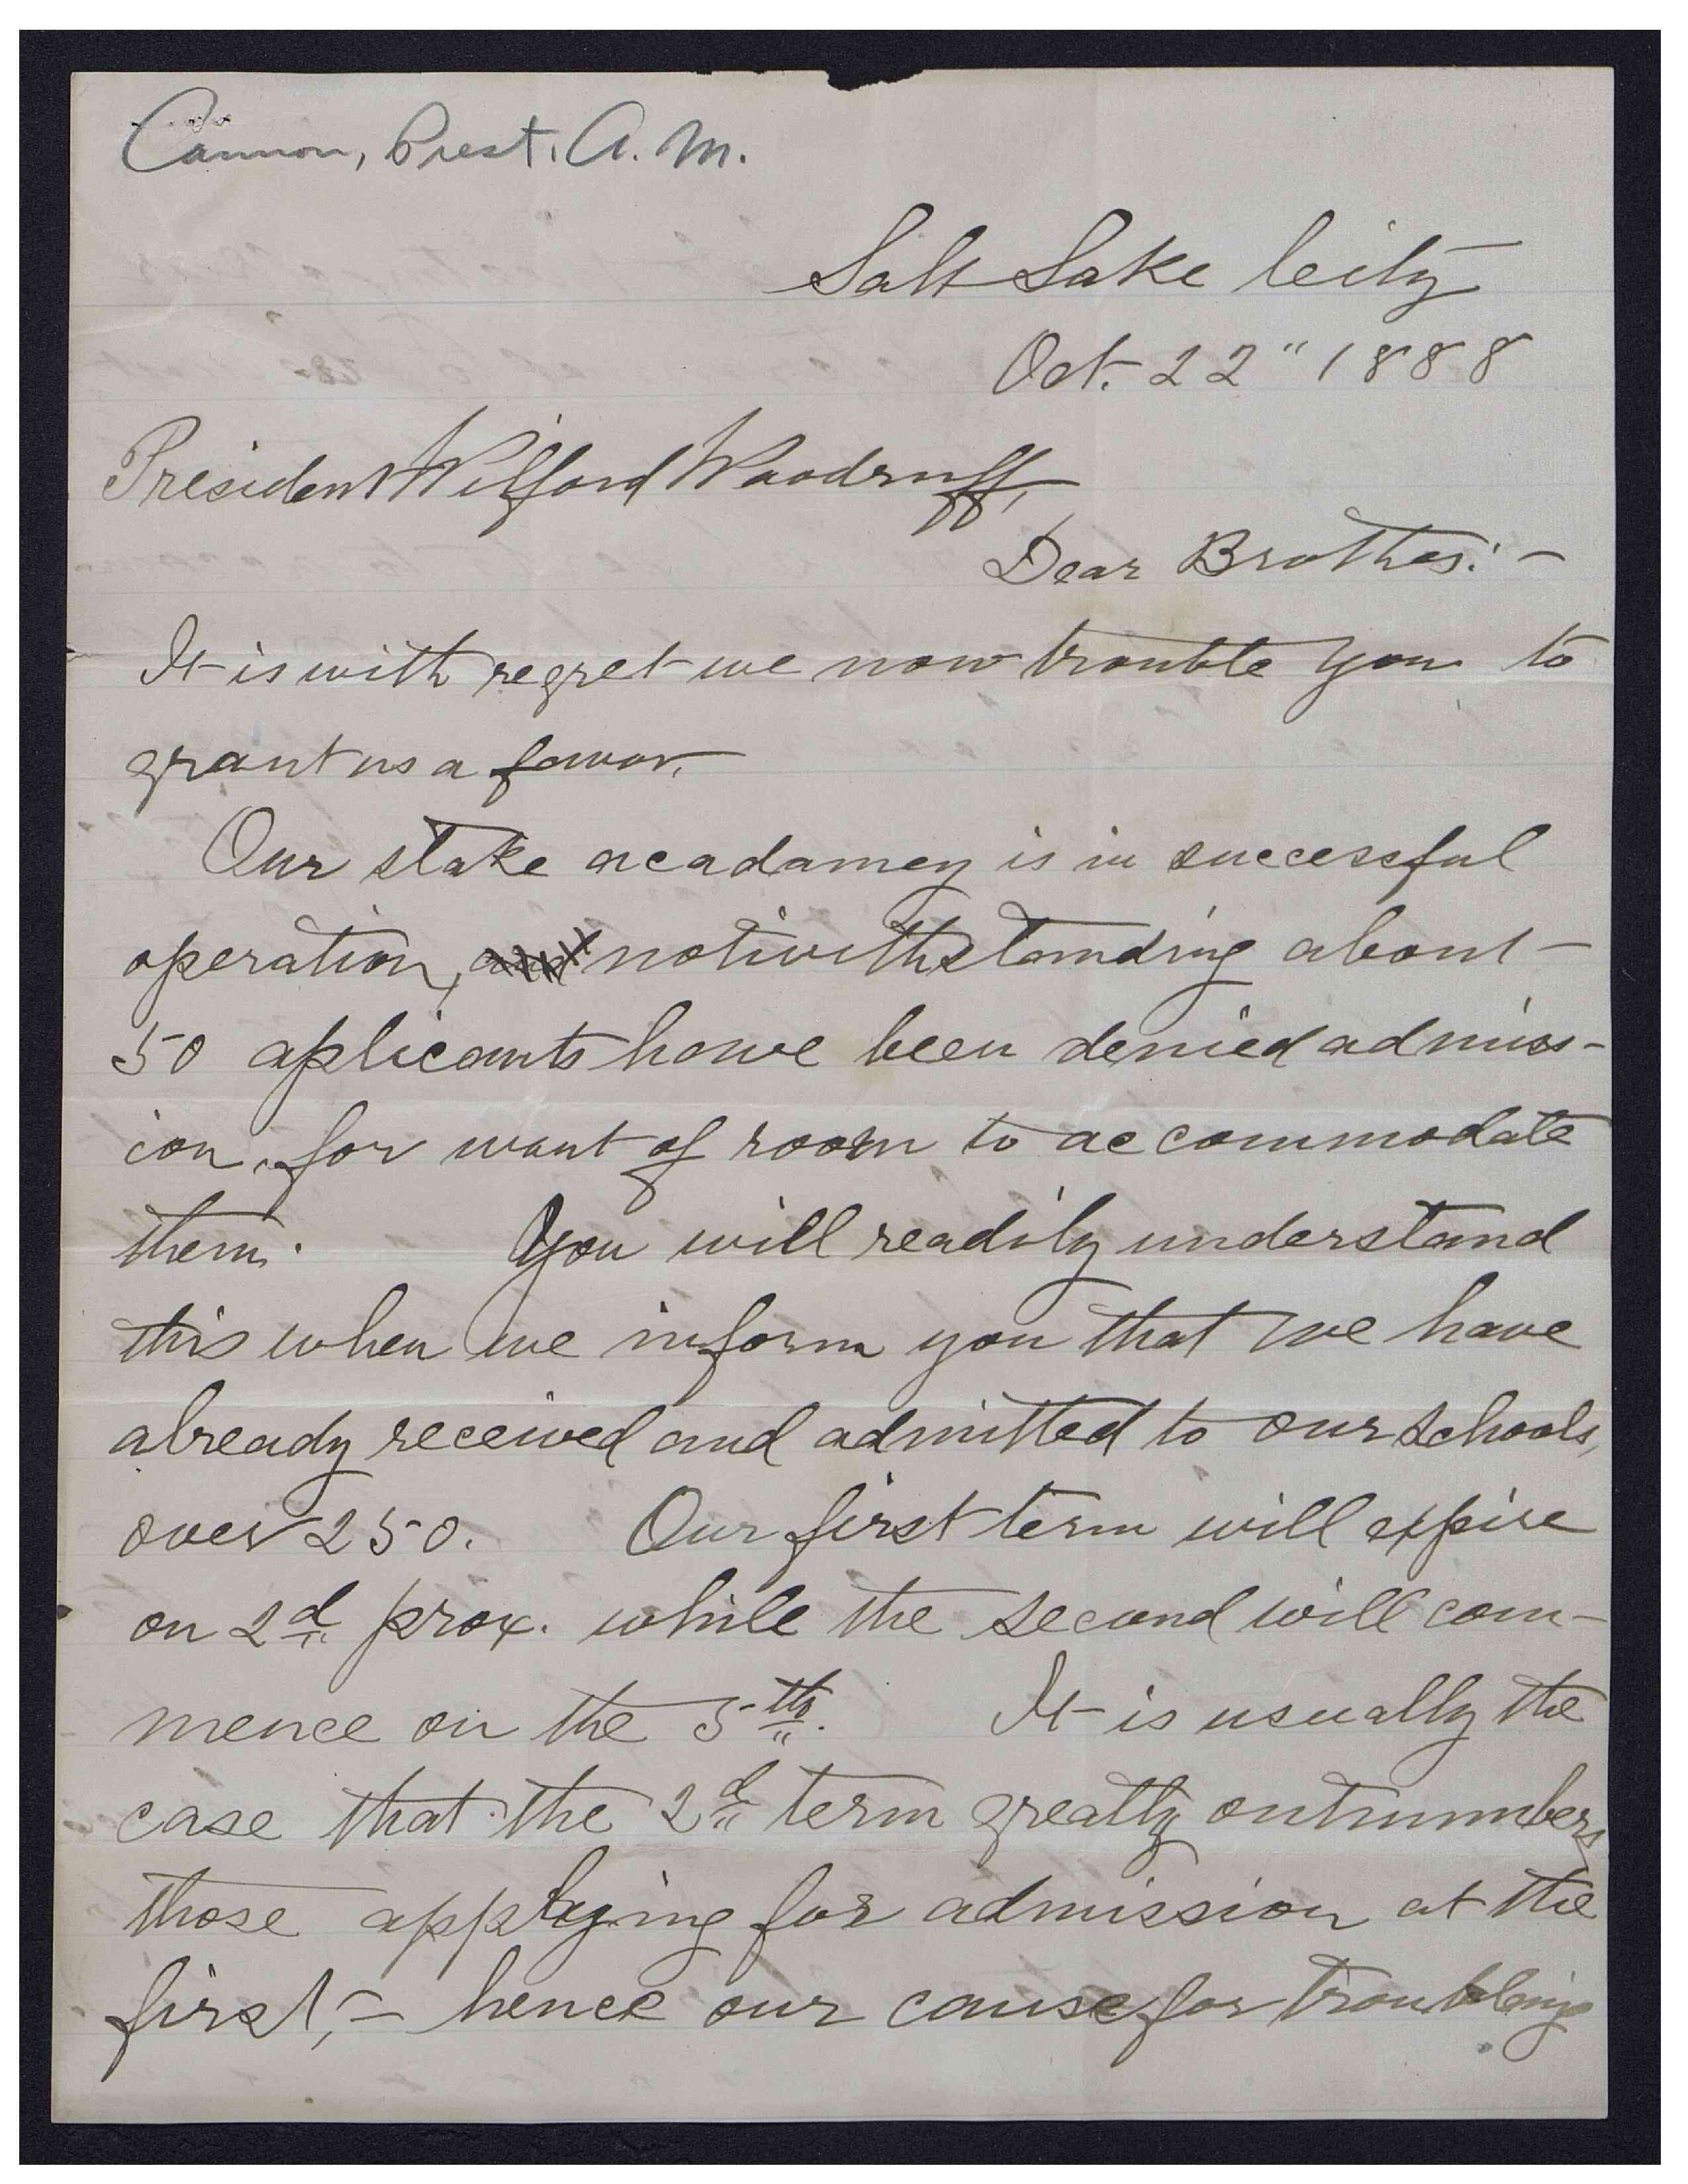 Cannon, Prest. A. M.
Salt Lake City
Oct. 22" 1888
President Wilford Woodruff,
Dear Brother:–
It is with regret we now trouble you to
grant us a favor.
Our stake acadamey is in successful
operation, and notwithstanding about
50 aplicants have been denied admiss-
ion, for want of room to accommodate
them. You will readily understand
this when we inform you that we have
already received and admitted to our schools,
over 250. Our first term will expire
on 2d prox. while the second will com-
mence on the 5th. It is usually the
case that the 2d term greatly outnumbers
those applying for admission at the
first,– hence our cause for troubling